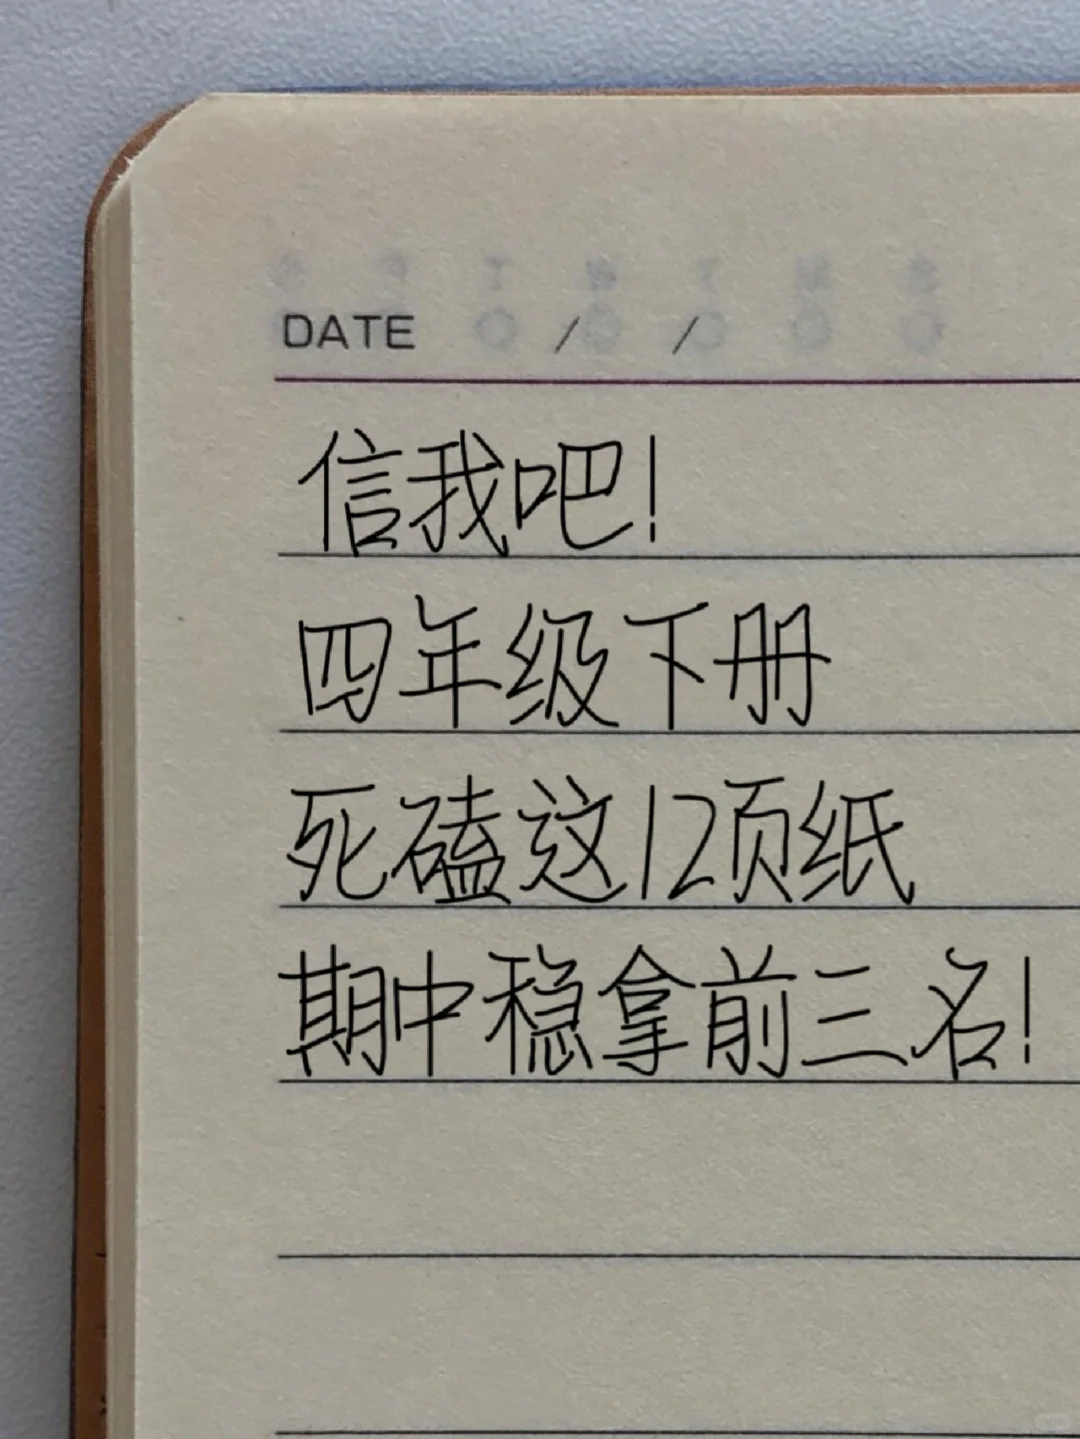 DATE / /
信我吧!
四年级下册
死磕这12页纸
期中稳拿前三名!